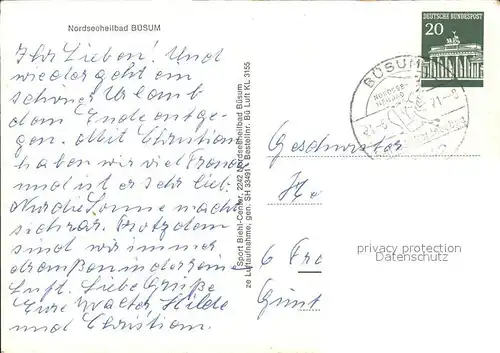 Nordseeheilbad BÜSUM
Ihr Lieben! Und
wieder geht ein
schöner Urlaub
dem Ende entge-
gen. Mit Christian
haben wir viel Freude
und er ist sehr lieb.
Nur die Sonne macht
sich rar. Trotzdem
sind wir immer
draußen in der reinen
Luft. Liebe Grüße
Eure Walter Hilde
und Christian.
Sport Biehl-Center, 2242 Nordseeheilbad Büsum
ze Luftaufnahme, gen. SH 33491 - Bestellnr. Bü Luft KL 3155
DEUTSCHE BUNDESPOST
20
BÜSUM
NORDSEE-
HEILBAD
71-8
Geschwister
He
6 Fra
Günt
privacy protection
Datenschutz